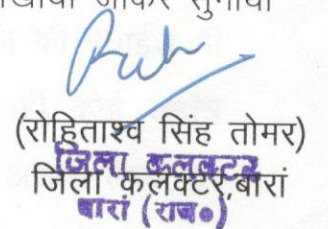 जाकर सुनाया
(रोहिताश्व सिंह तोमर)
जिला कलक्टर
जिला कलक्टर,बारां
बारां (राज०)